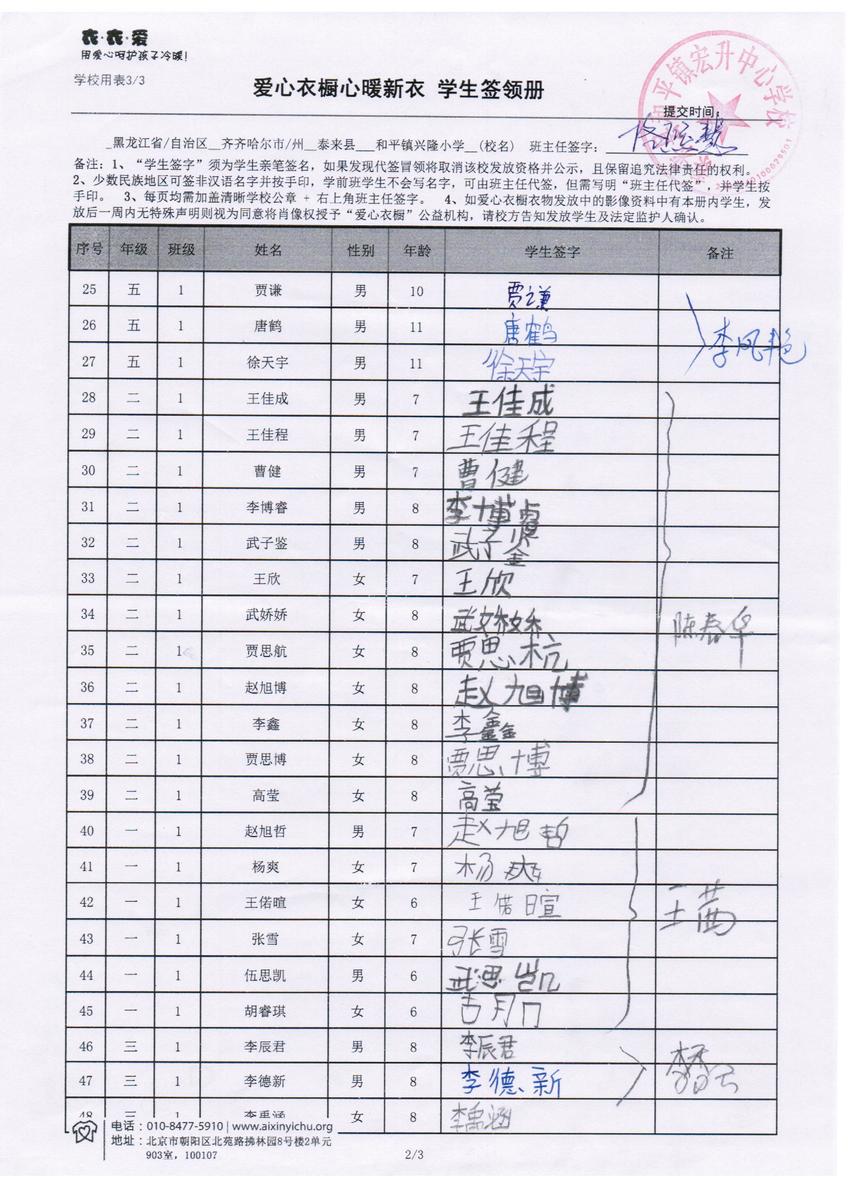 衣·衣·爱
用爱心呵护孩子冷暖!
学校用表3/3
爱心衣橱心暖新衣 学生签领册
和平镇宏升中心学校
提交时间:
_黑龙江省/自治区__齐齐哈尔市/州__泰来县___和平镇兴隆小学__(校名) 班主任签字:
备注:1、“学生签字”须为学生亲笔签名,如果发现代签冒领将取消该校发放资格并公示,且保留追究法律责任的权利。
2、少数民族地区可签非汉语名字并按手印,学前班学生不会写名字,可由班主任代签,但需写明“班主任代签”,并学生按
手印。 3、每页均须加盖清晰学校公章 + 右上角班主任签字。 4、如爱心衣橱衣物发放中的影像资料中有本册内学生,发
放后一周内无特殊声明则视为同意将肖像权授予“爱心衣橱”公益机构,请校方告知发放学生及法定监护人确认。
序号 年级 班级 姓名 性别 年龄 学生签字 备注
25 五 1 贾谦 男 10 贾谦
26 五 1 唐鹤 男 11 唐鹤 李凤艳
27 五 1 徐天宇 男 11 徐天宇
28 二 1 王佳成 男 7 王佳成
29 二 1 王佳程 男 7 王佳程
30 二 1 曹健 男 7 曹健
31 二 1 李博睿 男 8 李博睿
32 二 1 武子鉴 男 8 武子鉴
33 二 1 王欣 女 7 王欣
34 二 1 武娇娇 女 8 武 陈春华
35 二 1 贾思航 女 8 贾思杭
36 二 1 赵旭博 女 8 赵旭博
37 二 1 李鑫 女 8 李鑫
38 二 1 贾思博 女 8 贾思博
39 二 1 高莹 女 8 高莹
40 一 1 赵旭哲 男 7 赵旭哲
41 一 1 杨爽 女 7 杨爽
42 一 1 王偌暄 女 6 王偌暄 王茜
43 一 1 张雪 女 7 张雪
44 一 1 伍思凯 男 6 武思凯
45 一 1 胡睿琪 女 6
46 三 1 李辰君 男 8 李辰君
47 三 1 李德新 男 8 李德新
48 三 1 李禹涵 女 8 李禹涵
电话:010-8477-5910 | www.aixinyichu.org
地址:北京市朝阳区北苑路拂林园8号楼2单元
903室,100107
2/3